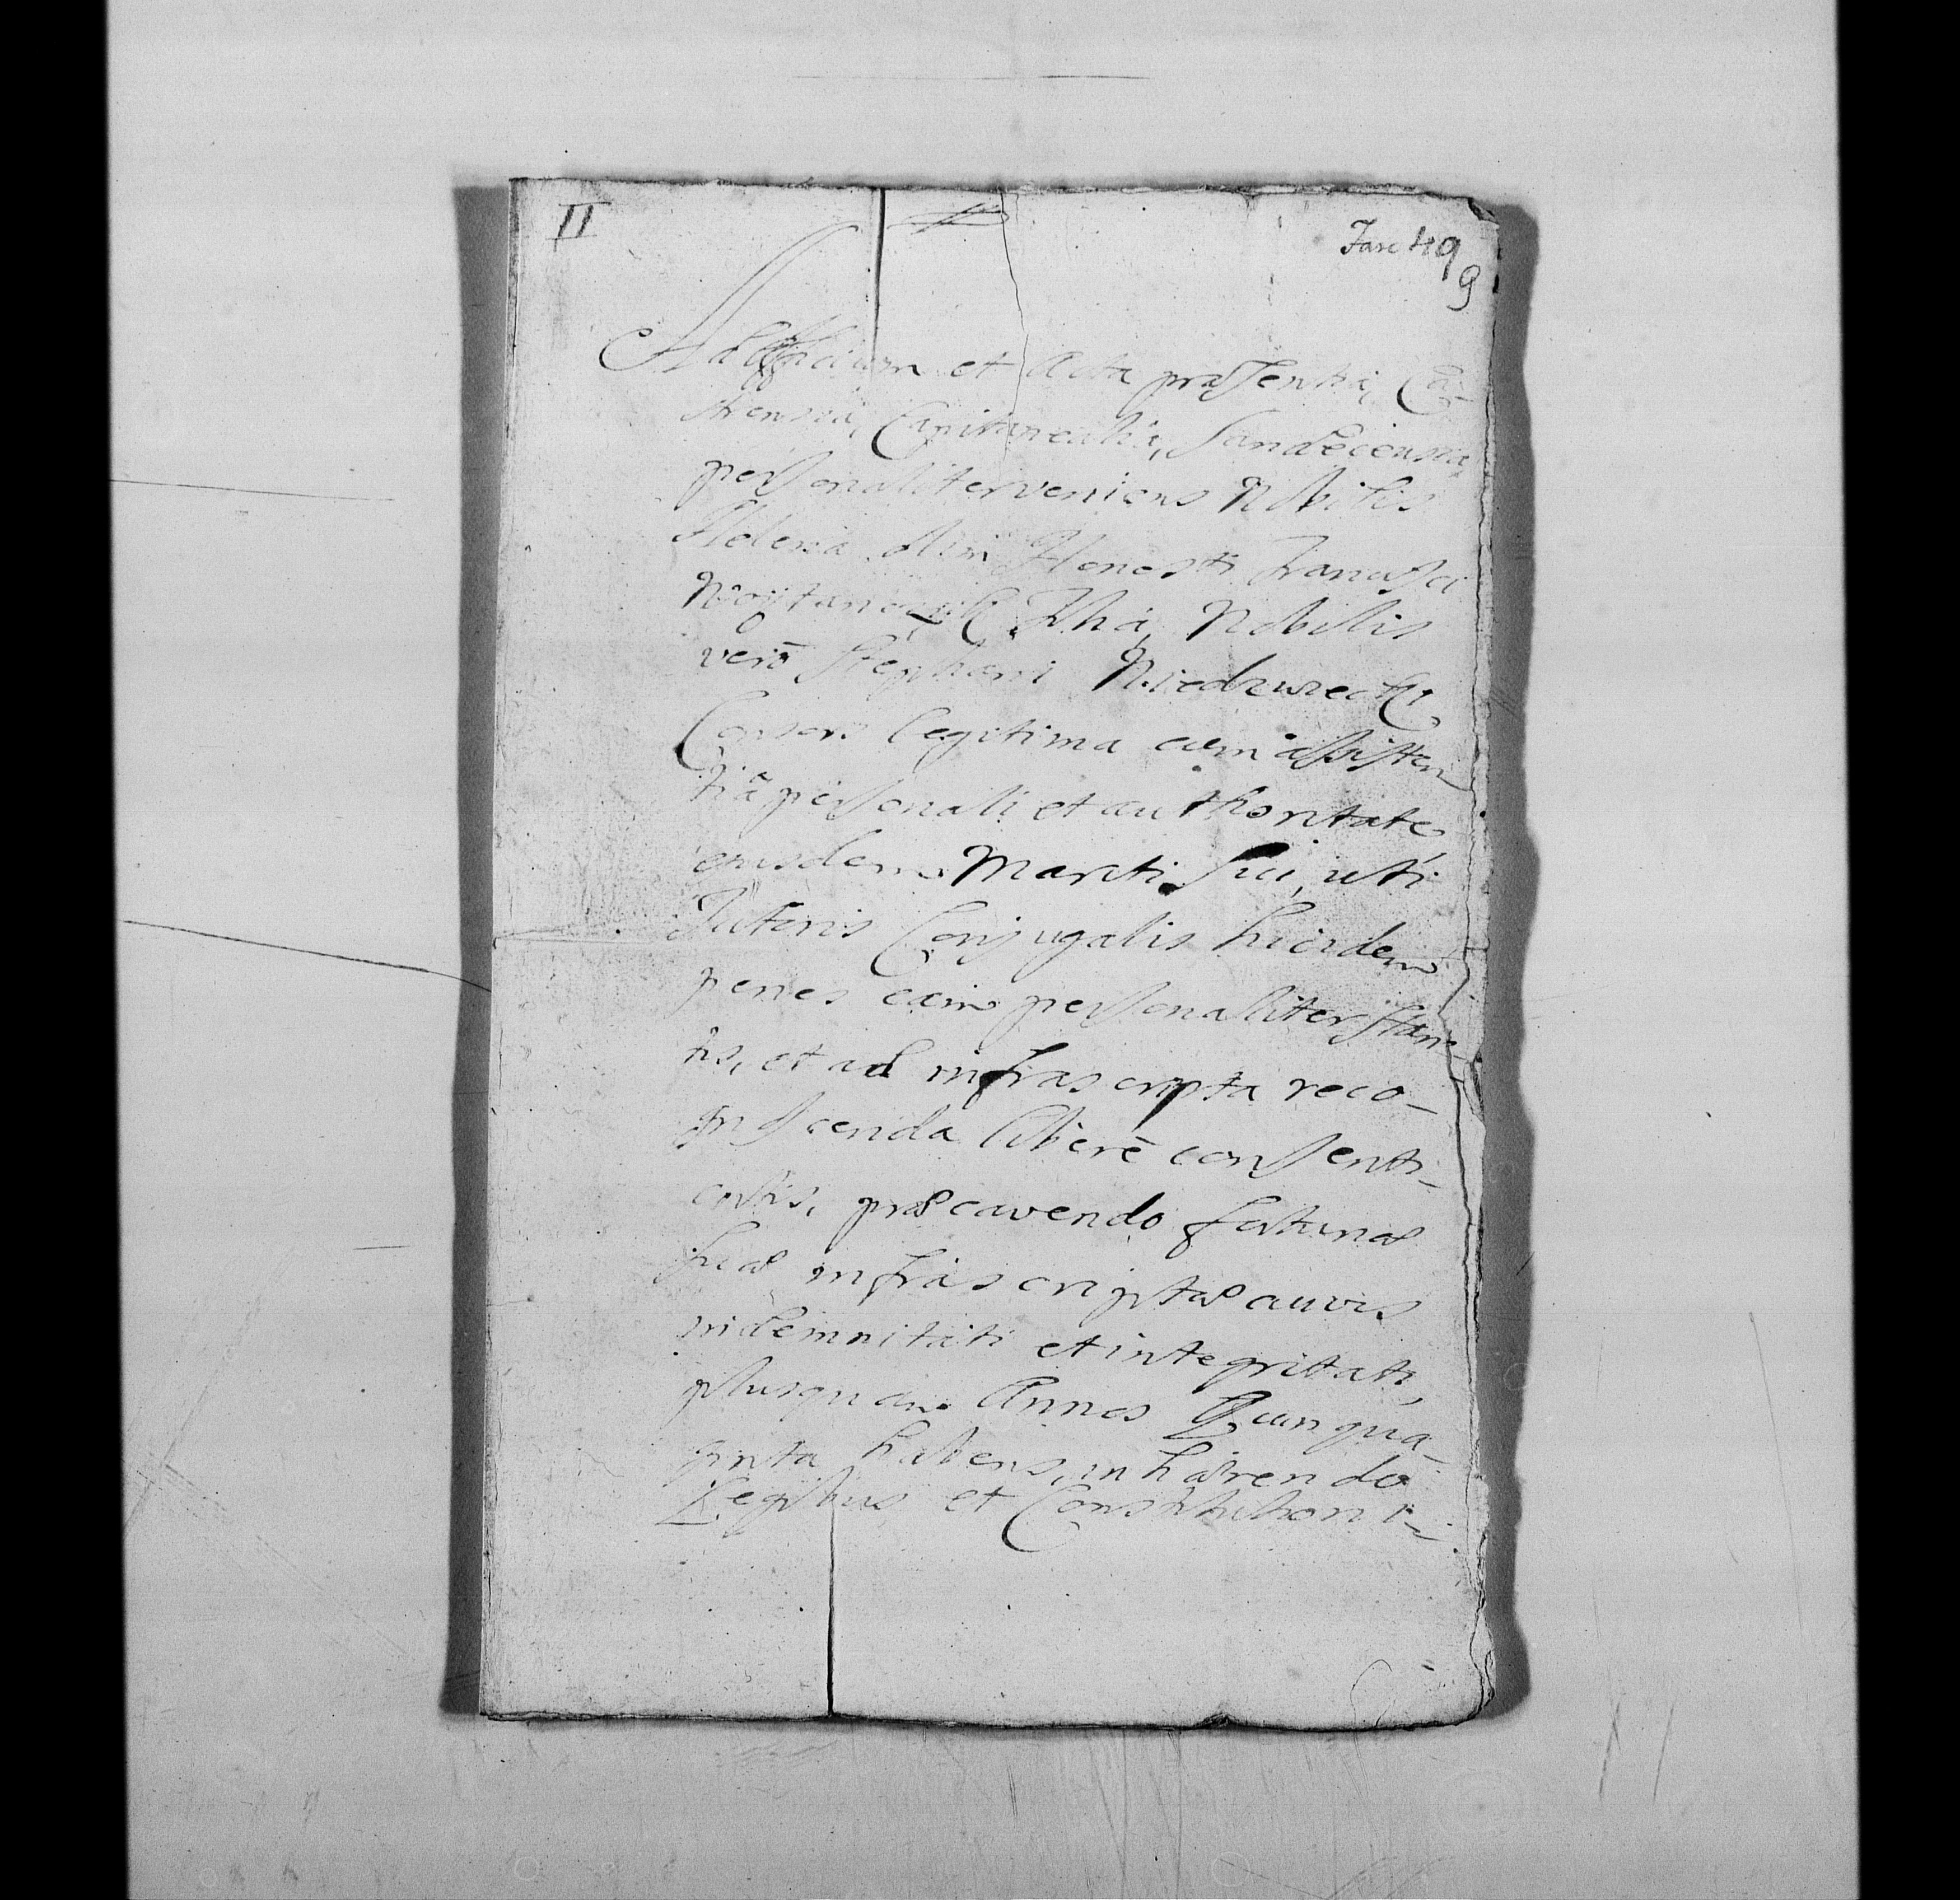 II
Fasc 49
9
Ad Officium et Acta præsentia, Ca-
strensia, Capitanealia, Sandecensia,
personaliter veniens Nobilis
Helena olim Honesti Francisci
filia, Nobilis
verò Stephani Niedzwiecki
Consors legitima cum assisten-
tiâ personali et authoritate
eiusdem Mariti sui, uti
Tutoris Conjugalis hicidem
penes eam personaliter stan-
tis, et ad infrascripta reco-
gnoscenda liberè consenti-
entis, præcavendo fortunæ
suæ infrascriptæ cuivis
indemnitati et integritati,
plusquam Annos Quinqua-
ginta habens, inhærendo
Legibus et Constitutioni-